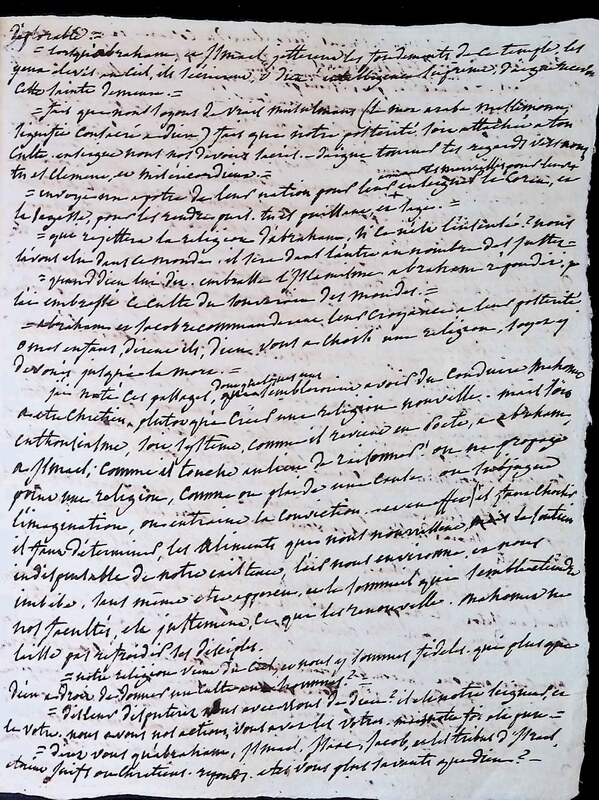 déplorable =
= lorsqu'abraham, et Ismael, jetterent les fondements de ce temple les
yeux elevés au ciel, ils s'ecrierent, o dieu intelligence suprême, daigne
cette sainte demeure. =
= fais que nous soyons de vrais musulmans (le mot arabe
signifie consacré a dieu) fais que notre posterité, soit attachée a ton
culte. enseigne nous nos devoirs sacrés. daigne tourner tes regards vers nous
tu es clement, et misericordieux. =
= envoye un apotre de leur nation pour leur enseigner le Coran, et
la sagesse, pour les rendre purs. tu es puissant, et sage. =
= qui rejettera la religion d'abraham, si ce n'est l'insensé? nous
l'avons elu dans ce monde. il sera dans l'autre au nombre des justes =
= quand dieu lui dit. embrasse l'Islamisme. abraham répondit, j'ai
embrassé le culte du souverain des mondes. =
= abraham et Jacob recommanderent leur croyance a leur posterité
o mes enfans, dirent ils, dieu, vous a choisi une religion, soyez y
devoués jusqu'a la mort. =
j'ai noté ces passages, dont quelques uns sembleroient avoir du conduire Mahomet
a etre Chrétien, plutot que créer une religion nouvelle. mais soit
enthousiasme, soit systême, comme il revient en poete, a abraham,
a Ismael, comme il touche au lieu de raisonner! on ne propage
point une religion, comme on plaide une cause. on subjugue
l'imagination, on entraine la conviction. en effet s'il faut choisir
il faut déterminer, les alimens qui nous nourrissent, le soutien
indispensable de notre existence, l'air nous environne, et nous
imbibe, sans même etre apperçu, et le sommeil qui semble eteindre
nos facultés, est justement, ce qui les renouvelle. Mahomet ne
laisse pas refroidir ses disciples.
= notre religion vient du Ciel, et nous y sommes fidels. qui plus que
dieu a droit de donner un culte aux hommes? =
= disputerez vous avec nous de dieu? il est notre seigneur, et
le votre. nous avons nos actions, vous avez les votres. notre foi est pure =
= direz vous qu'abraham, Ismael, Isaac, Jacob, et les tribus d'Israel,
etoient Juifs ou Chretiens. repondez. etes vous plus savants que dieu? =